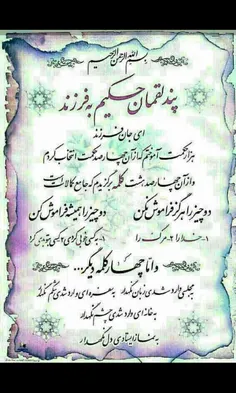 بسم الله الرحمن الرحیم
پند لقمان حکیم به فرزند
ای جان فرزند
هزار حکمت آموختم که از آن چهارصد حکمت انتخاب کردم
و از آن چهارصد هشت کلمه برگزیدم که جامع کمالات است
دو چیز را هرگز فراموش نکن دو چیز را همیشه فراموش کن
۱- خدا را ۲- مرگ را ۱- به کسی خوبی کردی ۲- کسی به تو بدی کرد
و اما چهار کلمه دیگر...
به مجلسی وارد شدی زبان نگهدار به سفره ای وارد شدی شکم نگهدار
به خانه ای وارد شدی چشم نگهدار
به نماز ایستادی دل نگهدار